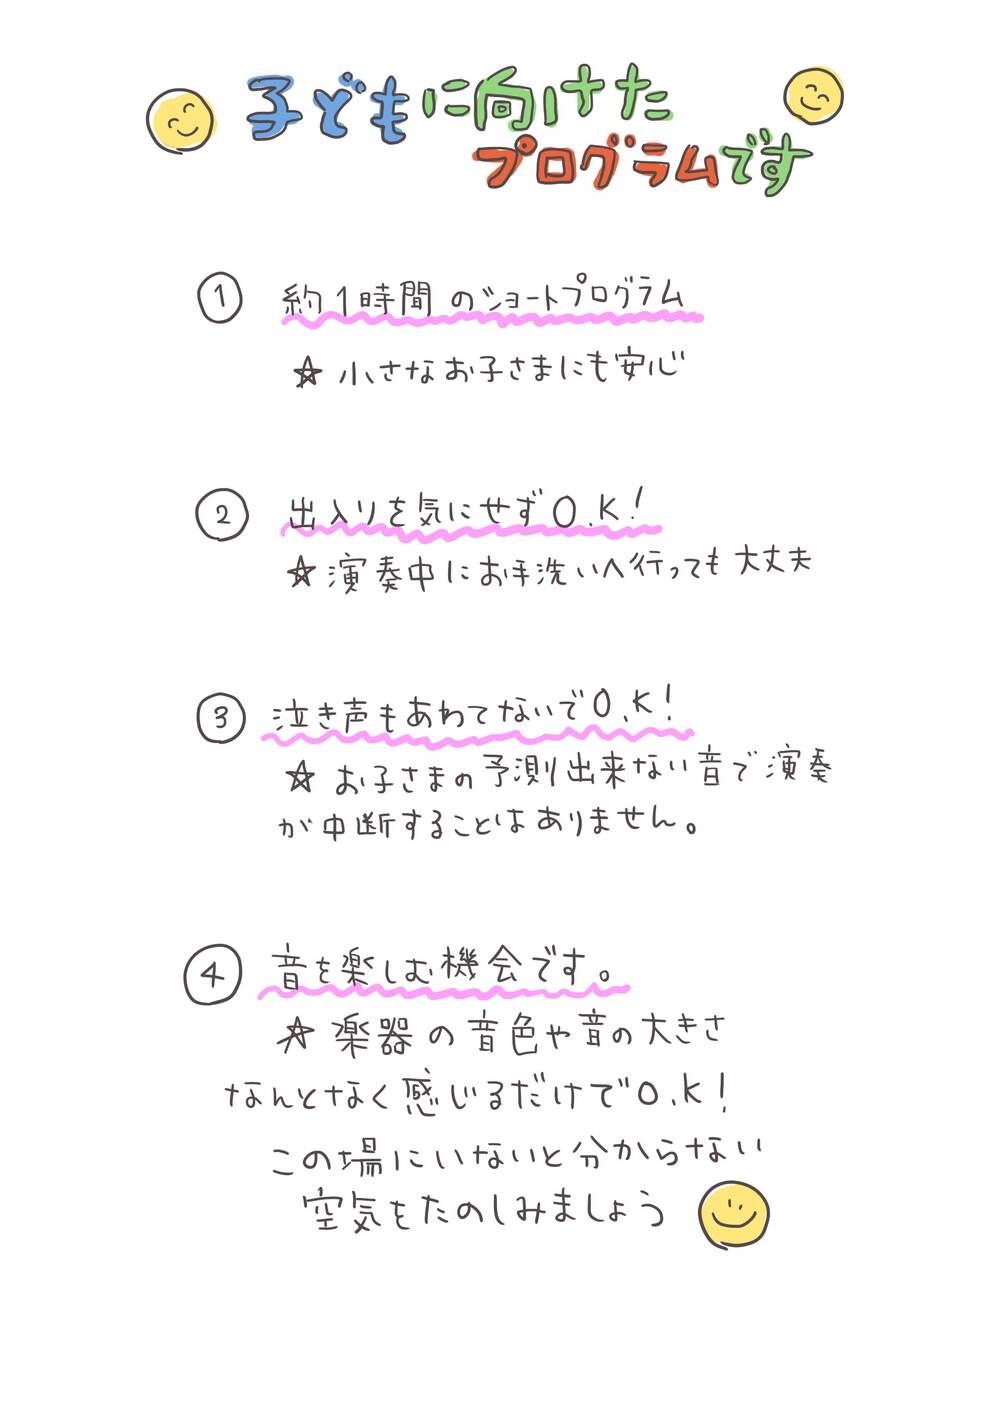 子どもに向けた
プログラムです
① 約1時間のショートプログラム
☆ 小さなお子さまにも安心
② 出入りを気にせずO.K!
☆ 演奏中にお手洗いへ行っても大丈夫
③ 泣き声もあわてないでO.K!
☆ お子さまの予測出来ない音で演奏
が中断することはありません。
④ 音を楽しむ機会です。
☆ 楽器の音色や音の大きさ
なんとなく感じるだけでO.K!
この場にいないと分からない
空気をたのしみましょう